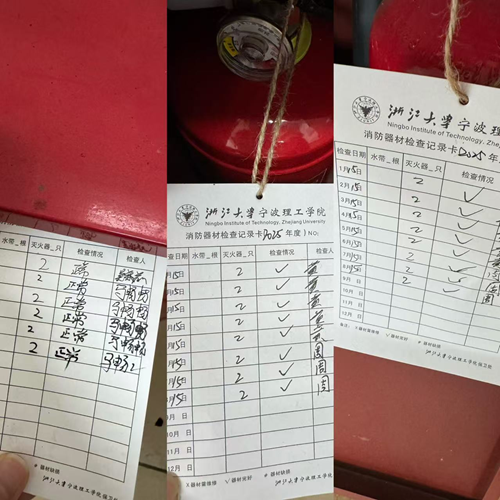 水带_根 灭火器_只 检查情况 检查人
2 正常
2 正常
2 正常
2 正常
2 正常
2 正常
# 器材缺损
浙江大学宁波理工学院保卫处
浙江大学宁波理工学院
Ningbo Institute of Technology, Zhejiang University
消防器材检查记录卡(2025年度) NO:
检查日期 水带_根 灭火器_只 检查情况 检查人
月15日 2 ✓ 黄
月15日 2 ✓ 黄
月15日 2 ✓ 黄
月15日 2 ✓ 黄
月15日 2 ✓
月15日 2 ✓ 周
月15日 2 ✓ 周
月15日 2 ✓ 周
9月 日
10月 日
11月 日
12月 日
X器材需维修 ✓器材完好 # 器材缺损
浙江大学宁波理工学院保卫处
浙江大学宁波理
Ningbo Institute of Technology, Zhe
消防器材检查记录卡2025年
检查日期 水带_根 灭火器_只 检查情况
1月15日 2 ✓
2月15日 2 ✓
3月15日 2 ✓
4月15日 2 ✓
5月15日 2 ✓
6月15日 2 ✓
7月15日 2 ✓
8月15日 2 ✓
9月 日
10月 日
11月 日
12月 日
备注: X器材需维修 ✓器材完好 # 器材缺损
浙江大学宁波理工学院保卫处